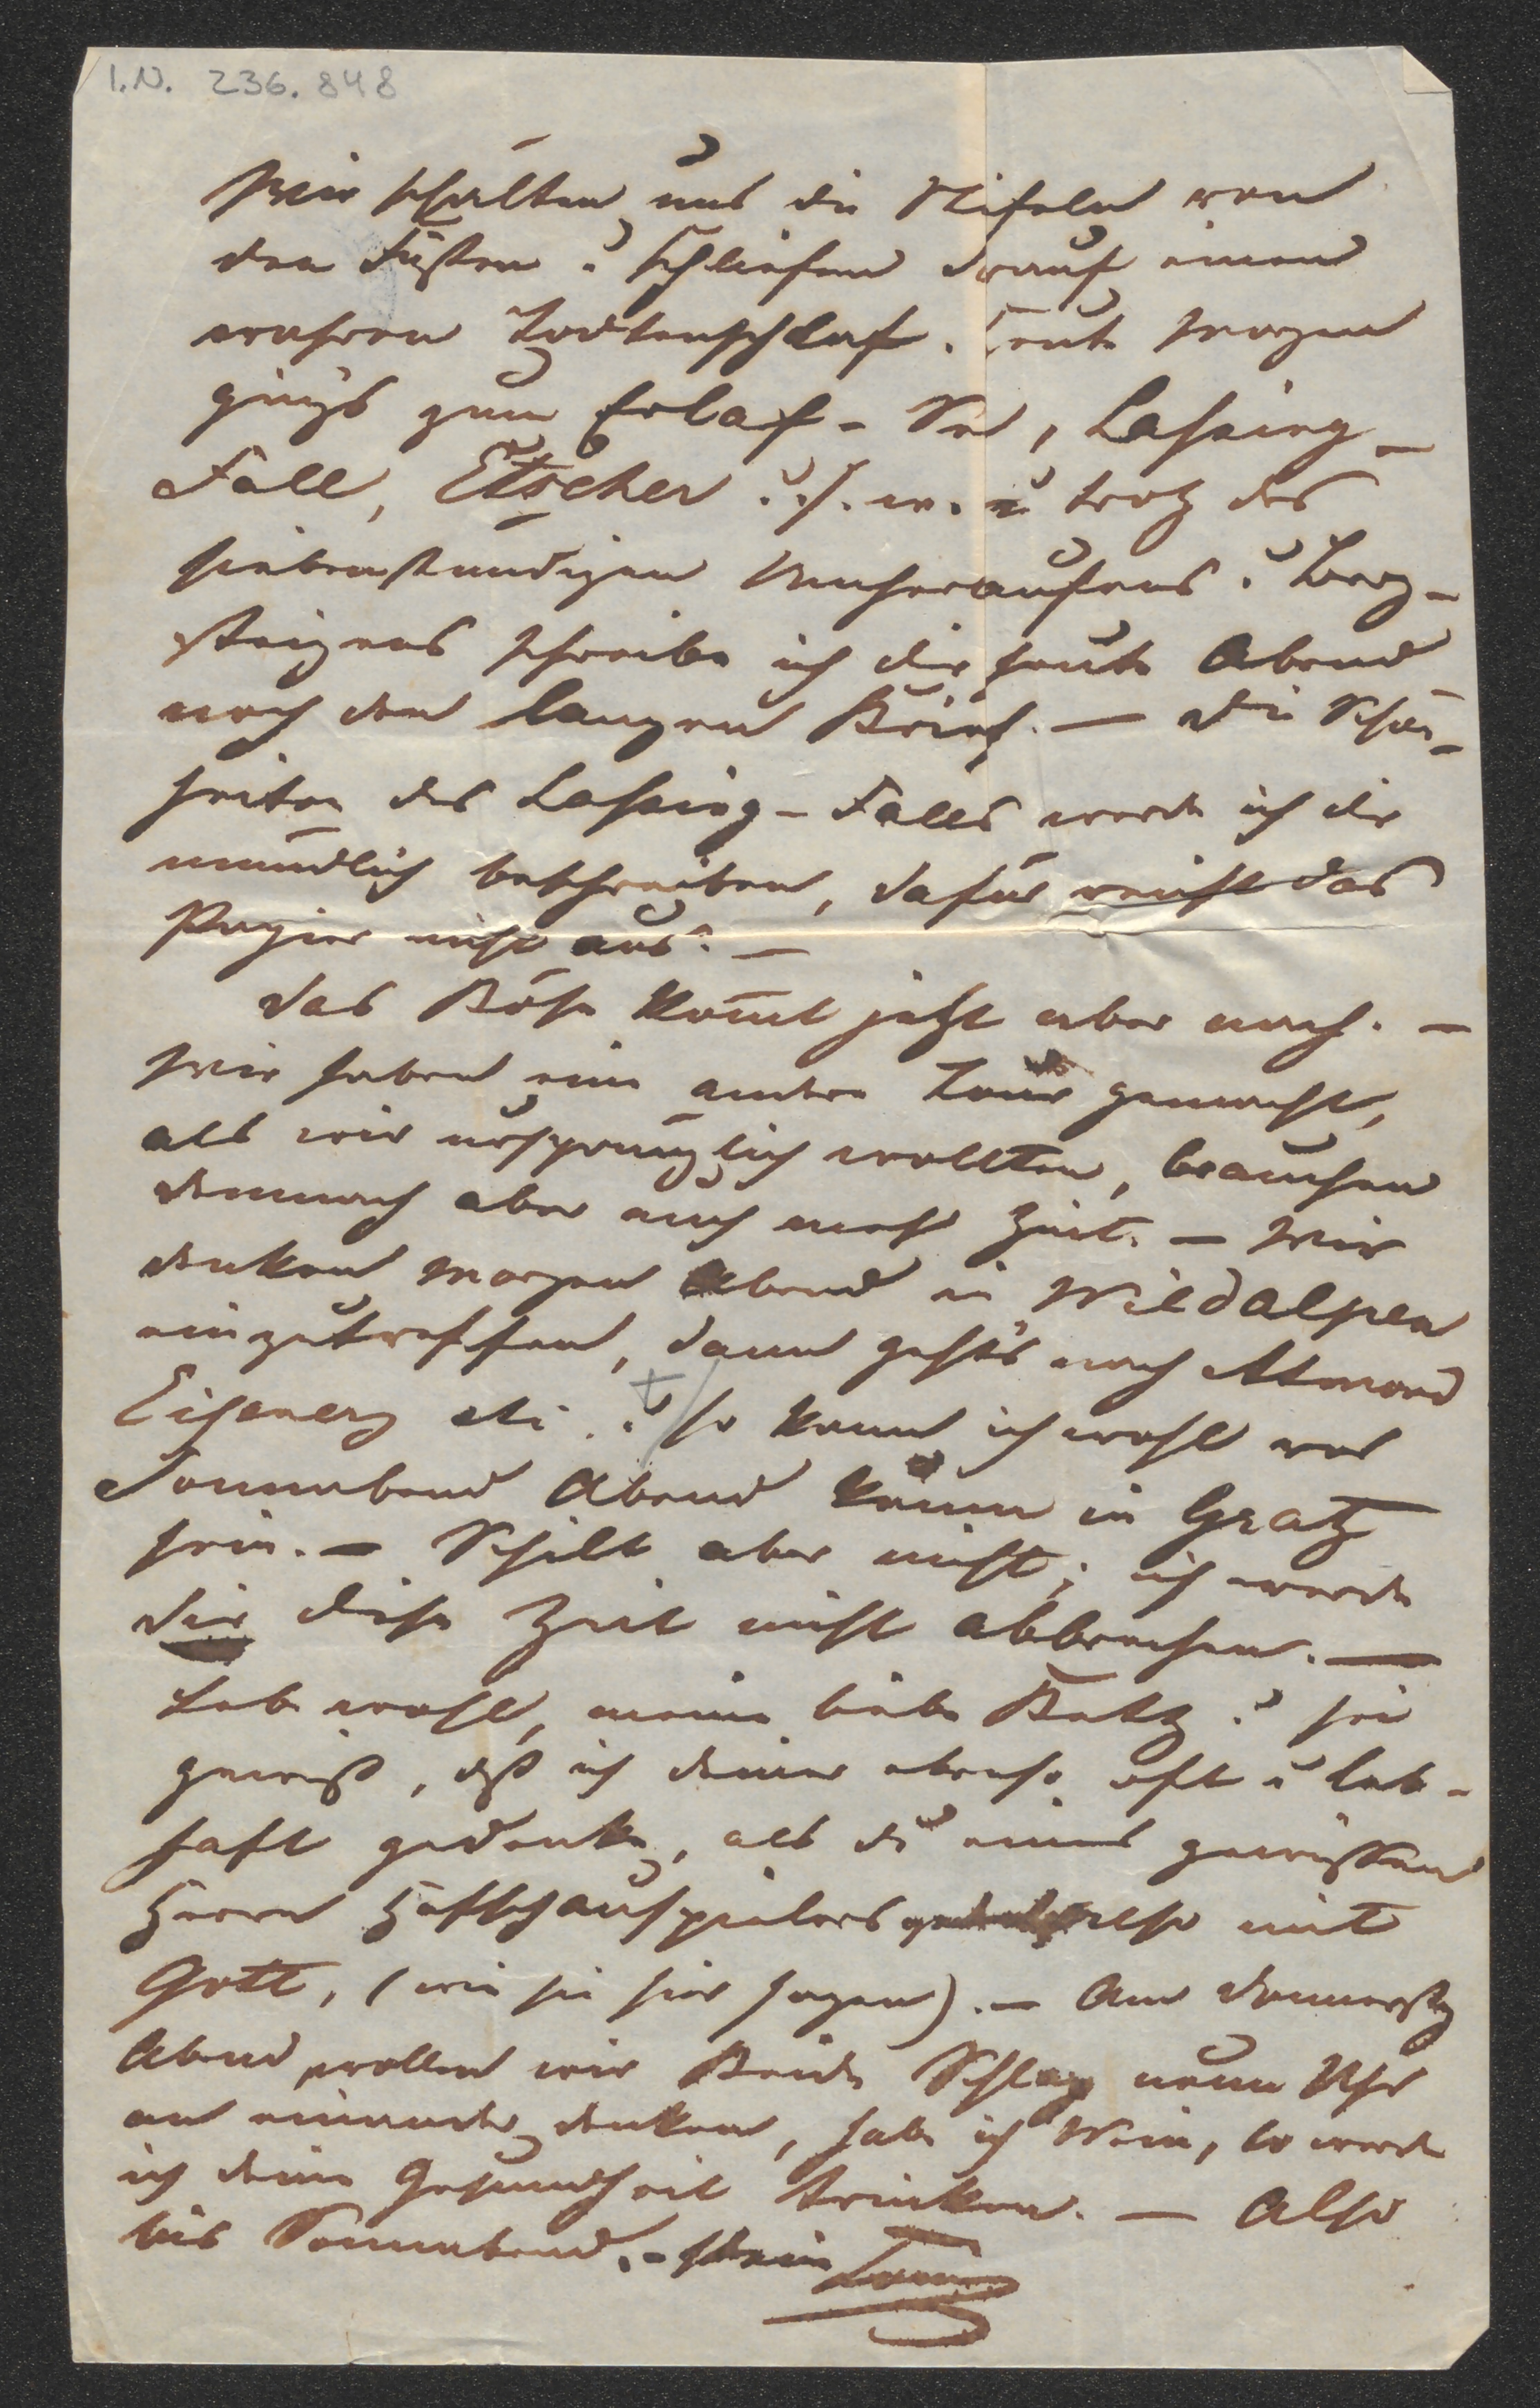 I.N. 236.848
Wir schälten uns die Stifeln von
den Füßen u schliefen drauf einen
wahren Todtenschlaf. Heute Morgen
ging's zum Erlaf-See, Lassing-
Fall, Ötscher u. s. w. u trotz des
siebenstündigen Umherlaufens u Berg-
steigens schreibe ich dir heute Abend
noch den langen Brief. — Die Schön-
heiten des Lassing-Falls werde ich dir
mündlich beschreiben, dafür reicht das
Papier nicht aus. —
Das Böse kom̄t jetzt aber nach. —
Wir haben eine andere Tour gemacht,
als wir ursprünglich wollten, brauchen
demnach aber auch mehr Zeit. — Wir
denken morgen Abend in Wildalpen
einzutreffen, dann geht's nach Admond
Eisenerz etc. u so kann ich wohl vor
Sonnabend Abend kaum in Gratz
sein. — Schilt aber nicht; ich werde
dir diese Zeit nicht abbrechen. —
Leb wohl, meine liebe Betty u sei
gewiß, daß ich deiner ebenso oft u leb-
haft gedenke, als du eines gewissen
Herrn Hofschauspielers also mit
Gott, (wie sie hier sagen). — Am Donnerstag
Abend wollen wir Beide Schlag neun Uhr
an einander denken, habe ich Wein, so werde
ich deine Gesundheit trinken. — Also
bis Sonnabend. — dein